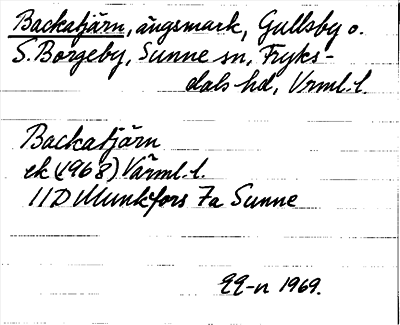 Backatjärn, ängsmark, Gullsby o.
S. Borgeby, Sunne sn, Fryks-
dals hd, Vrml. l.
Backatjärn
ek (1968) Värml. l.
11D Munkfors 7a Sunne
EE-n 1969.